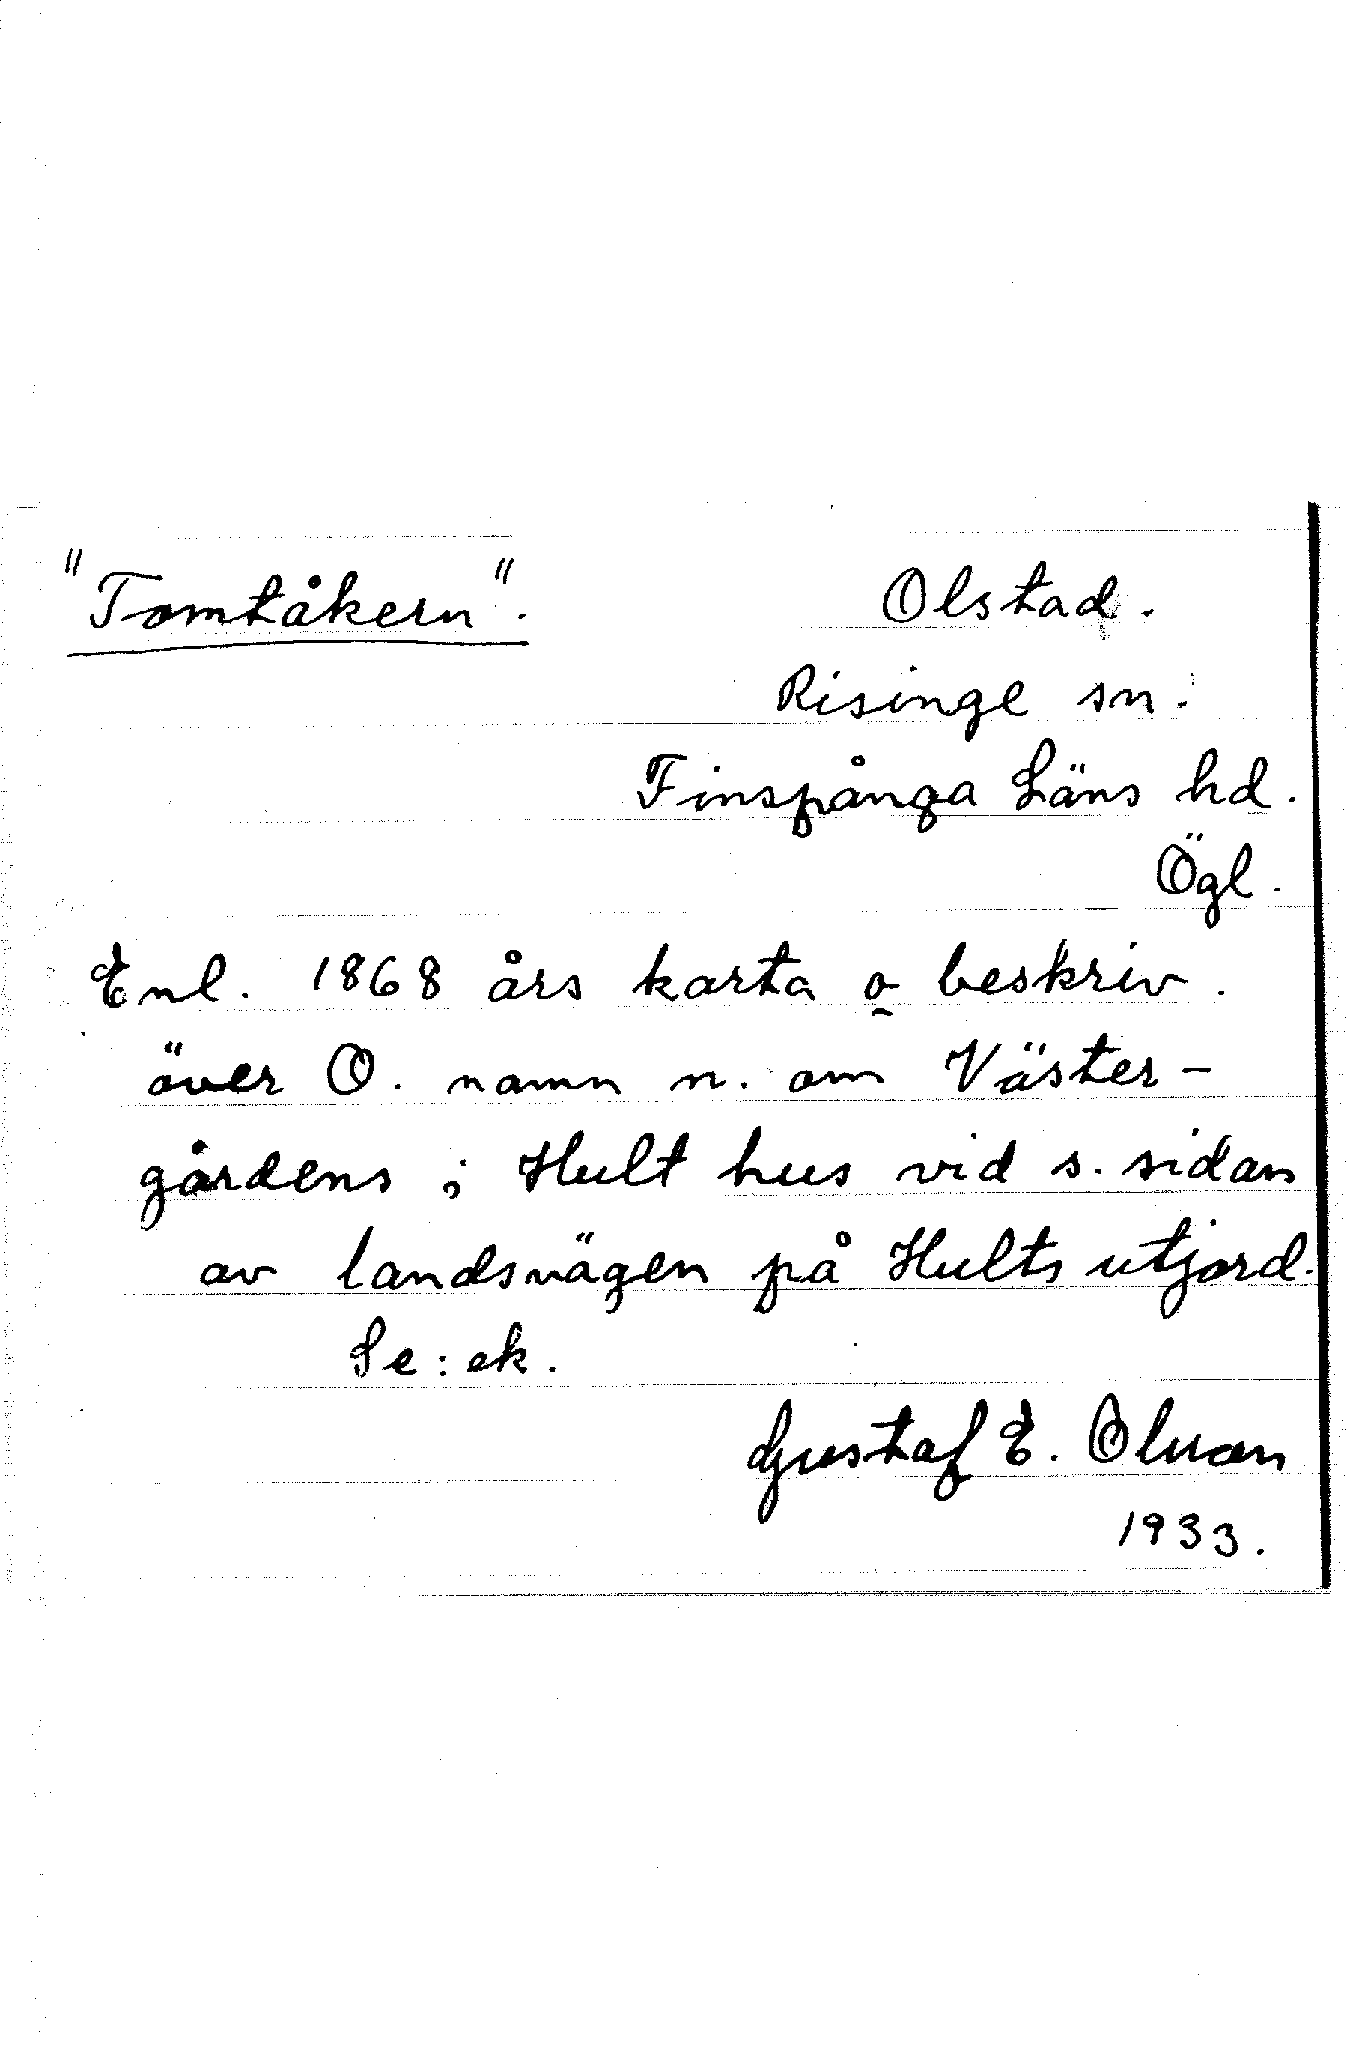 "Tomtåkern". Olstad.
Risinge sn.
Finspånga Läns hd.
Ögl.
Enl. 1868 års karta o beskriv.
över O. namn n. om Väster-
gårdens i Hult hus vid s. sidan
av landsvägen på Hults utjord.
Se: ek.
Gustaf E. Olson
1933.